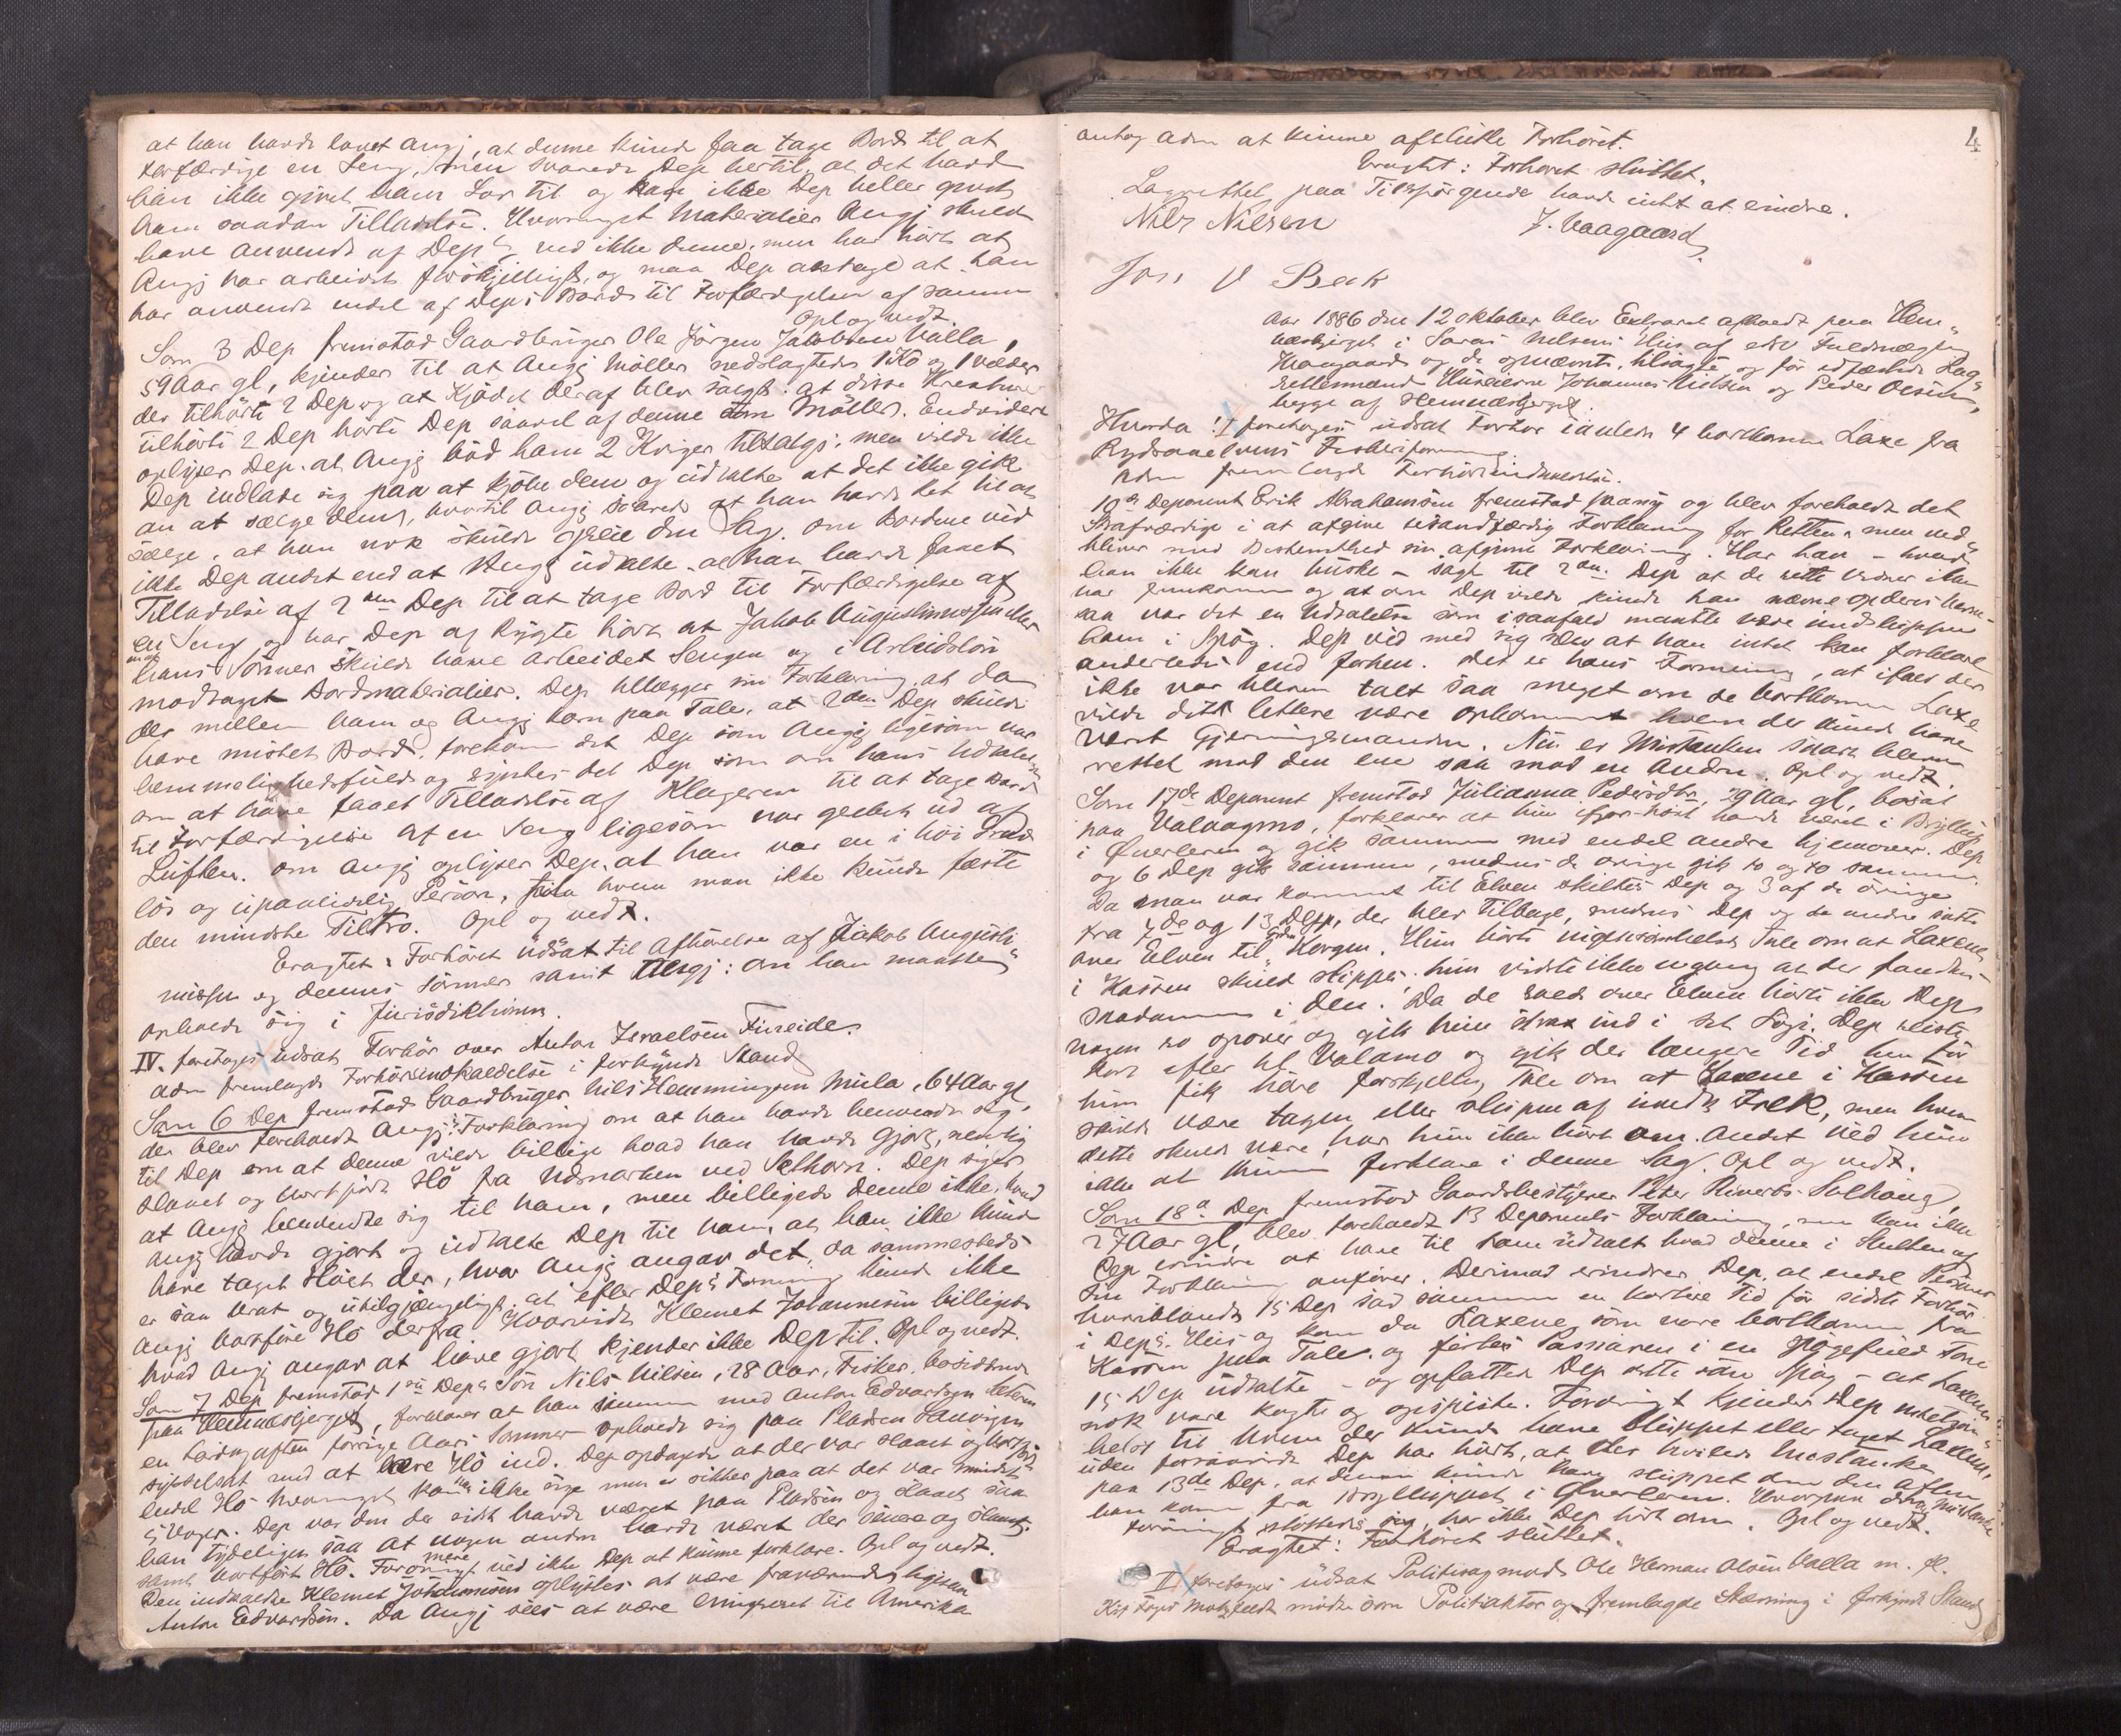 at han havde lovet Angj, at denne kunde faa tage Bord til at
forfærdige en Seng, men svarede Dep hertil, at det havde
han ikke givet ham Lov til og har ikke Dep heller givet
ham saadan Tilladelse. Hvormeget Materialier Angj skulde
have anvendt af Deps ved ikke denne, men har hørt at
Angj har arbeidet forskjelligt, og maa Dep antage at han
har anvendt endel af Deps Bord til Forfærdigelsen af samme
Opl og vedt.
Som 3 Dep fremstod Gaardbruger Ole Jørgen Jakobsen Valla,
59 Aar gl, kjender til at Angj Møller nedslagtede 1 Ko og 1 Væder
der tilhørte 2 Dep og at Kjødet deraf blev solgt. at disse Kreature
tilhørte 2 Dep hørte Dep saavel af denne som Møller. Endvidere
oplyser Dep. at Angj bød ham 2 Kviger tilsalgs. men vilde ikke
Dep indlade sig paa at kjøbe dem og udtalte at det ikke gik
an at sælge dem, hvortil Angj svarede at han havde Ret til at
sælge, at han nok skulde greie den Sag. om Bordene ved
ikke Dep andet end at Angj udtalte at han havde faaet
Tilladelse af 2den Dep til at tage Bord til Forfærdigelse af
en Seng og har Dep af Rygte hørt at Jakob Augustinussen eller
hans Sønner skulde have arbeidet Sengen og i Arbeidsløn
modtaget Bordmaterialier. Dep tillægger sin Forklaring, at da
der mellem ham og Angj kom paa Tale, at 2den Dep skulde
have mistet Bord, forekom det Dep som Angj ligesom var
hemmelighedsfuld og syntes det Dep som om hans Udtalelse
om at have faaet Tilladelse af Klageren til at tage Bord
til Forfærdigelse af en Seng ligesom var grebet ud af
Luften. om Angj oplyser Dep. at han var en i høi Grad
løs og upaalidelig Person, til hvem man ikke kunde fæste
den mindste Tiltro. Opl og vedt.
Eragtet: Forhøret udsat til Afhørelse af Jakob Augusti-
nussen og dennes Sønner samt Angj: om han maatte
opholde sig i Jurisdiktionen.
IV. foretoges udsat Forhør over Anton Israelsen Fineide.
Adm fremlagde Forhørsindkaldelse i forkyndt Stand
Som 6 Dep fremstod Gaardbruger Nils Hemmingsen Mula, 64 Aar gl.
der blev foreholdt Angj:s Forklaring om at han havde henvendt sig
til Dep om at denne vilde billige hvad han havde gjort, nemlig
slaaet og bortført Hø fra Udmarken ved Selhorn. Dep siger
at Angj henvendte sig til ham, men billigede denne ikke, hvad
Angj havde gjort og udtalte Dep til ham, at han ikke kunde
have taget Høiet der, hvor Angj angav det, da sammesteds
er saa brat og utilgjængeligt, at efter Deps Formening kunde ikke
Angj bortføre Hø derfra. Hvorvidt Klemet Johannesen billigede
hvad Angj angav at have gjort kjender ikke Dep til. Opl og vedt.
Som 7 Dep fremstod 1ste Deps Søn Nils Nilsen, 28 Aar, Fisker, bosiddende
paa Hemnesbjerget, forklarer at han sammen med Anton Edvardsen
en Lørdagaften forrige Aars Sommer opholdt sig paa Pladsen
sysselsat med at bære Hø ind. Dep opdagede at der var slaaet og bortført
endel Hø hvormeget kan ikke sige men er sikker paa at det var mindst
5 Voger. Dep var den der sidst havde været paa Pladsen og slaaet saa
han tydeligen saa at nogen anden havde været der senere og slaaet
samt bortført Hø. Forøvrigt mere ved ikke Dep at kunne forklare. Opl og vedt.
Den indkaldte Klemet Johannesen oplystes at være fraværende ligesom
Anton Edvardsen. Da Angj sees at være emigreret til Amerika
4
antog Adm at kunne afslutte Forhøret.
Eragtet: Forhøret sluttet.
Lagrettet paa Tilspørgende havde intet at erindre.
Nils Nilsen J. Vaagaard
Beck
Aar 1886 den 12 Oktober blev Extraret afholdt paa Hem-
næsbjerget i Saras Nelsens Hus af edsv Fuldmægtig
Waagaard og de opnævnte, tilsagte og før edfæstede Lag-
rettesmænd Husmænd Johannes Nielsen og Peder Olsen,
begge af Hemnæsbjerget.
Hvorda: I foretoges udsat Forhør iauledn 4 bortkomne Laxe fra
Rydsaaelvens Fiskeriforening.
Adm fremlagde Forhørsindkaldelse.
10de Deponent Erik Abrahamsen fremstod paany og blev foreholdt det
Strafværdige i at afgive usandfærdig Forklaring for Retten, men ved-
bliver med Bestemthed sin afgivne Forklaring. Har han – hvad
han ikke kan huske – sagt til 2den Dep at de rette Vidner ikke
var fremkomne og at om Dep vilde kunde han nævne op deres Navne –
saa var det en Udtalelse som isaafald maatte være undsluppen
ham i Spøg. Dep ved med sig selv at han intet kan forklare
anderledes end forhen. Det er hans Formening, at ifald der
ikke var bleven talt saa meget om de bortkomne Laxe
vilde det lettere være opkommet hvem der kunde have
været Gjerningsmanden. Nu er Mistanken snart bleven
rettet mod den ene saa mod en Anden. Opl og vedt.
Som 17de Deponent fremstod Julianna Pedersdtr, 29 Aar gl, bosat
paa Valaagmo, forklarer at hun ifjor høst havde været i Bryllup
i Øverleren og gik sammen med endel andre hjemover. Dep
og 6 Dep gik sammen, medens de øvrige gik to og to sammen.
Da man var kommet til Elven skiltes Dep og 3 af de øvrige
fra 4de og 13 Dep, der blev tilbage, medens Dep og de andre satte
over Elven til Korgen. Hun hørte ingensomhelst Tale om at Laxene
i Kassen skulde slippes, hun vidste ikke engang at der fandtes
saadanne i den. Da de roede over Elven hørte ikke Dep
nogen ro opover og gik hun strax ind i sit Logi. Dep reiste
kort efter til Valamo og gik der længere Tid hen før
hun fik høre forskjellig Tale om at Laxene i Kassen
skulde være tagen eller sluppen af ondt Folk, men hvem
dette skulde være, har hun ikke hørt om. Andet ved hun
ikke at kunne forklare i denne Sag. Opl og vedt.
Som 18de Dep fremstod Gaardsbestyrer Peter Rivertz Solhaug,
27 Aar gl, blev foreholdt 13 Deponents Forklaring, men kan ikke
Dep erindre at have til ham udtalt hvad denne i Slutten af
sin Forklaring anfører. Derimod erindrer Dep. at endel Personer
hvoriblandt 15 Dep sad sammen en kortere Tid før sidste Forhør
i Deps Hus og kom da Laxene, som vare bortkomne fra
Kassen paa Tale. og førtes Passiaren i en spøgefuld Tone
15 Dep udtalte – og opfatted Dep dette som Spøg – at Laxene
nok vare kogte og opspiste. Forøvrigt kjender Dep intetsom-
helst til hvem der kunde have sluppet eller taget Laxene,
uden forsaavidt Dep har hørt, at der hvilede Mistanke
paa 13de Dep, at denne kunde have sluppet dem den Aften
han kom fra Bryllupet i Øverleren. Hvorpaa denne Mistanke
forøvrigt støttede sig har ikke Dep hørt om. Opl og vedt.
Eragtet: Forhøret sluttet.
II foretoges udsat Politisag mod Ole Herman Olsen Valla m. fl.
Kst Foged Motzfeldt mødte som Politiaktor og fremlagde Stævning i forkyndt Stand